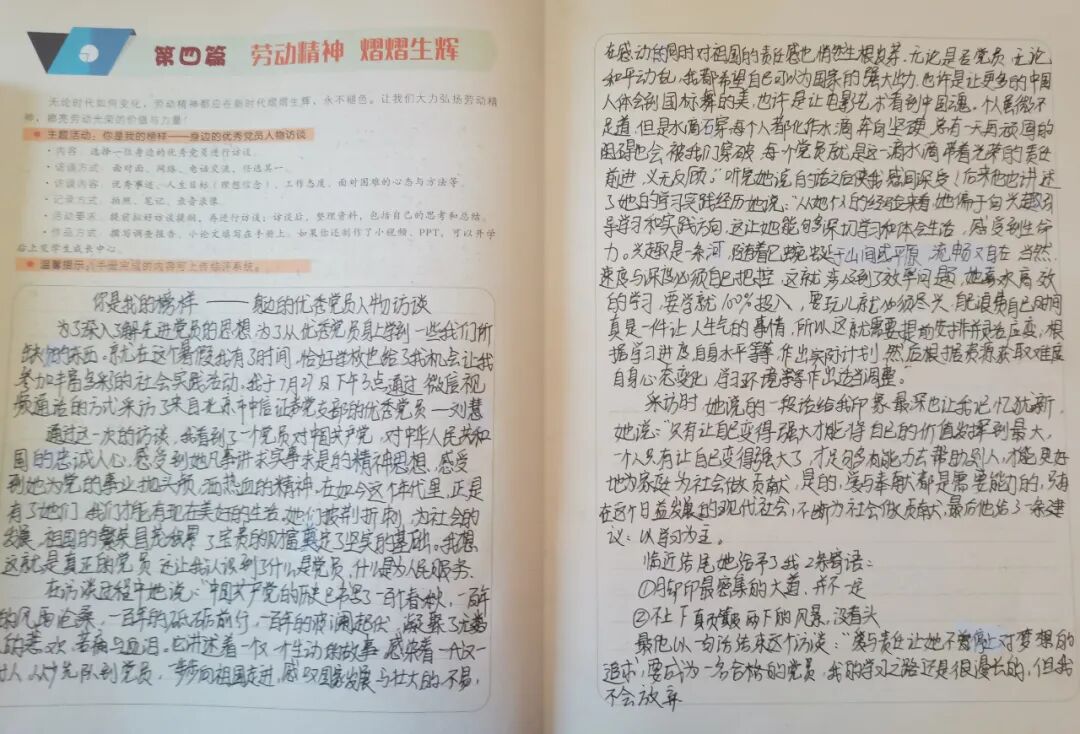 第四篇 劳动精神 熠熠生辉
无论时代如何变化，劳动精神都应在新时代熠熠生辉，永不褪色。让我们大力弘扬劳动精
神，擦亮劳动光荣的价值与力量！
主题活动：你是我的榜样——身边的优秀党员人物访谈
·内容：选择一位身边的优秀党员进行访谈。
·访谈方式：面对面、网络、电话交流，任选其一。
·访谈内容：优秀事迹、人生目标（理想信念）、工作态度、面对困难的心态与方法等。
·记录方式：拍照、笔记、录音录像。
·活动要求：提前拟好访谈提纲，再进行访谈；访谈后，整理资料，包括自己的思考和总结。
·作品方式：撰写调查报告、小论文填写在手册上。如果你还制作了小视频、PPT，可以开学
后上交学生成长中心。
温馨提示：手册完成的内容可上传综评系统。
你是我的榜样——身边的优秀党员人物访谈
为了深入了解先进党员的思想，为了从优秀党员身上学到一些我们所
缺少的东西。我尤在这个暑假我有了时间，恰好学校也给了我机会让我
参加丰富多彩的社会实践活动。我于7月27日下午3点通过微信视
频通话的方式采访了来自北京市中信证券党支部的优秀党员—刘慧
通过这一次的访谈，我看到了一个党员对中国共产党，对中华人民共和
国的忠诚人心，感受到她凡事讲求实事求是的精神思想，感受
到她为党的事业抛头颅，洒热血的精神。在如今这个年代里，正是
有了她们，我们才能有现在美好的生活，她们披荆折刺，为社会的
发展，祖国的繁荣昌茂积累了宝贵的财富奠定了坚实的基础。我想
这就是真正的党员，这让我认识到了什么是党员，什么是为人民服务.
在访谈过程中她说：“中国共产党的历史已书写了一百个春秋，一百年
的风雨沧桑，一百年的砥砺前行，一百年的波澜起伏，凝聚了无数
的悲欢、苦痛与血泪。它讲述着一个又一个生动的故事，感染着一代又一代
人，从少先队到党员，一步步向祖国走进，感叹国家发展与壮大的不易，
在感动的同时对祖国的责任感也悄然生根发芽，无论是否党员，无论
和平动乱，我都希望自己可以为国家的强大出力，也许是让更多的中国
人体会到国标舞的美，也许是让电影艺术看到中国魂。个人虽微不
足道，但是水滴石穿每个人都化作水滴，奔向坚硬，总有一天再顽固的
困难也会被我们穿破，每个党员就是这一滴水滴带着光荣的责任
前进，义无反顾。”听完她说的话之后使我感同深受！后来他也讲述
了她的学习实践经历她说：“从她个人的经验来看，她偏于向兴趣引
导学习和实践方向，这让她能够多深切学习和体会生活，感受到生命
力。兴趣是一条河，随着它蜿蜒于山间或平原，流畅又自在，当然
速度与深度必须自己把控，这就涉及到了效率问题，她喜欢高效
的学习，要学就100%投入，要玩儿就必须尽兴，自己浪费自己时间
真是一件让人生气的事情，所以这就需要提前安排并灵活应变，根
据学习进度，自身水平等等，作出实际计划，然后根据资源获取难度
自身心态变化，学习环境等等作出适当调整。”
采访时，她说的一段话给我印象最深也让我记忆犹新，
她说：“只有让自己变得强大才能将自己的价值发挥到最大，
一个人只有让自己变得强大了，才足够有能力去帮助别人，才能更好
地为家庭为社会做贡献，是的，爱与奉献都是需要能力的，只有
在这个日益发展的现代社会，不断为社会做贡献，最后他给了一条建
议：以学习为主。
临近结尾她给予了我2条寄语：
①
②
最他以一句话结束这个访谈：“爱与责任让她不曾停止对梦想的
追求，要成为一名合格的党员，我的学习之路还是很漫长的，但我
不会放弃